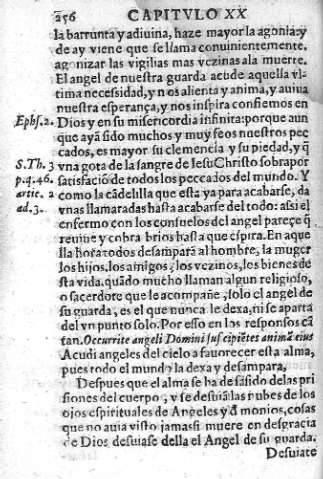 256 CAPITVLO XX
la barrunta y adiuina, haze mayor la agonia: y
de ay viene que se llama conuinientemente.
agonizar las vigilias mas vezinas ala muerte.
El angel de nuestra guarda acude aquella vl-
tima necessidad, y nos alienta y anima, y auiua
nuestra esperança, y nos inspira confiemos en
Ephs. 2. Dios y en su misericordia infinita: porque aun
que ayã sido muchos y muy feos nuestros pec
cados, es mayor su clemencia y su piedad, y q̃
S. Th. 3 vna gota de la sangre de Iesu Christo sobra por
p. q. 46. satisfaciõ de todos los peccados del mundo. Y
artic. 2 como la cãdelilla que esta ya para acabarse, da
ad. 3. vnas llamaradas hasta acabarse del todo: assi el
enfermo con los consuelos del angel pareçe q̃
reuiue y cobra brios hasta que espira. En aque
lla hora todos desamparã al hombre, la muger
los hijos, los amigos, los vezinos, los bienes de
sta vida. quãdo mucho llaman algun religioso,
o sacerdote que le acompañe, solo el angel de
su guarda, es el que nunca le dexa, ni se aparta
del vn punto solo. Por esso en los responsos cã
tan. Occurrite angeli Domini suscipiẽtes animã eius
Acudi angeles del cielo a fauorecer esta alma,
pues todo el mundo la dexa y desampara,
Despues que el alma se ha desasido de las pri
siones del cuerpo, y se desuiã las nubes de los
ojos espirituales de Angeles y dmonios, cosas
que no auia visto jamas si muere en desgracia
de Dios desuiase della el Angel de su guarda.
Desuiate